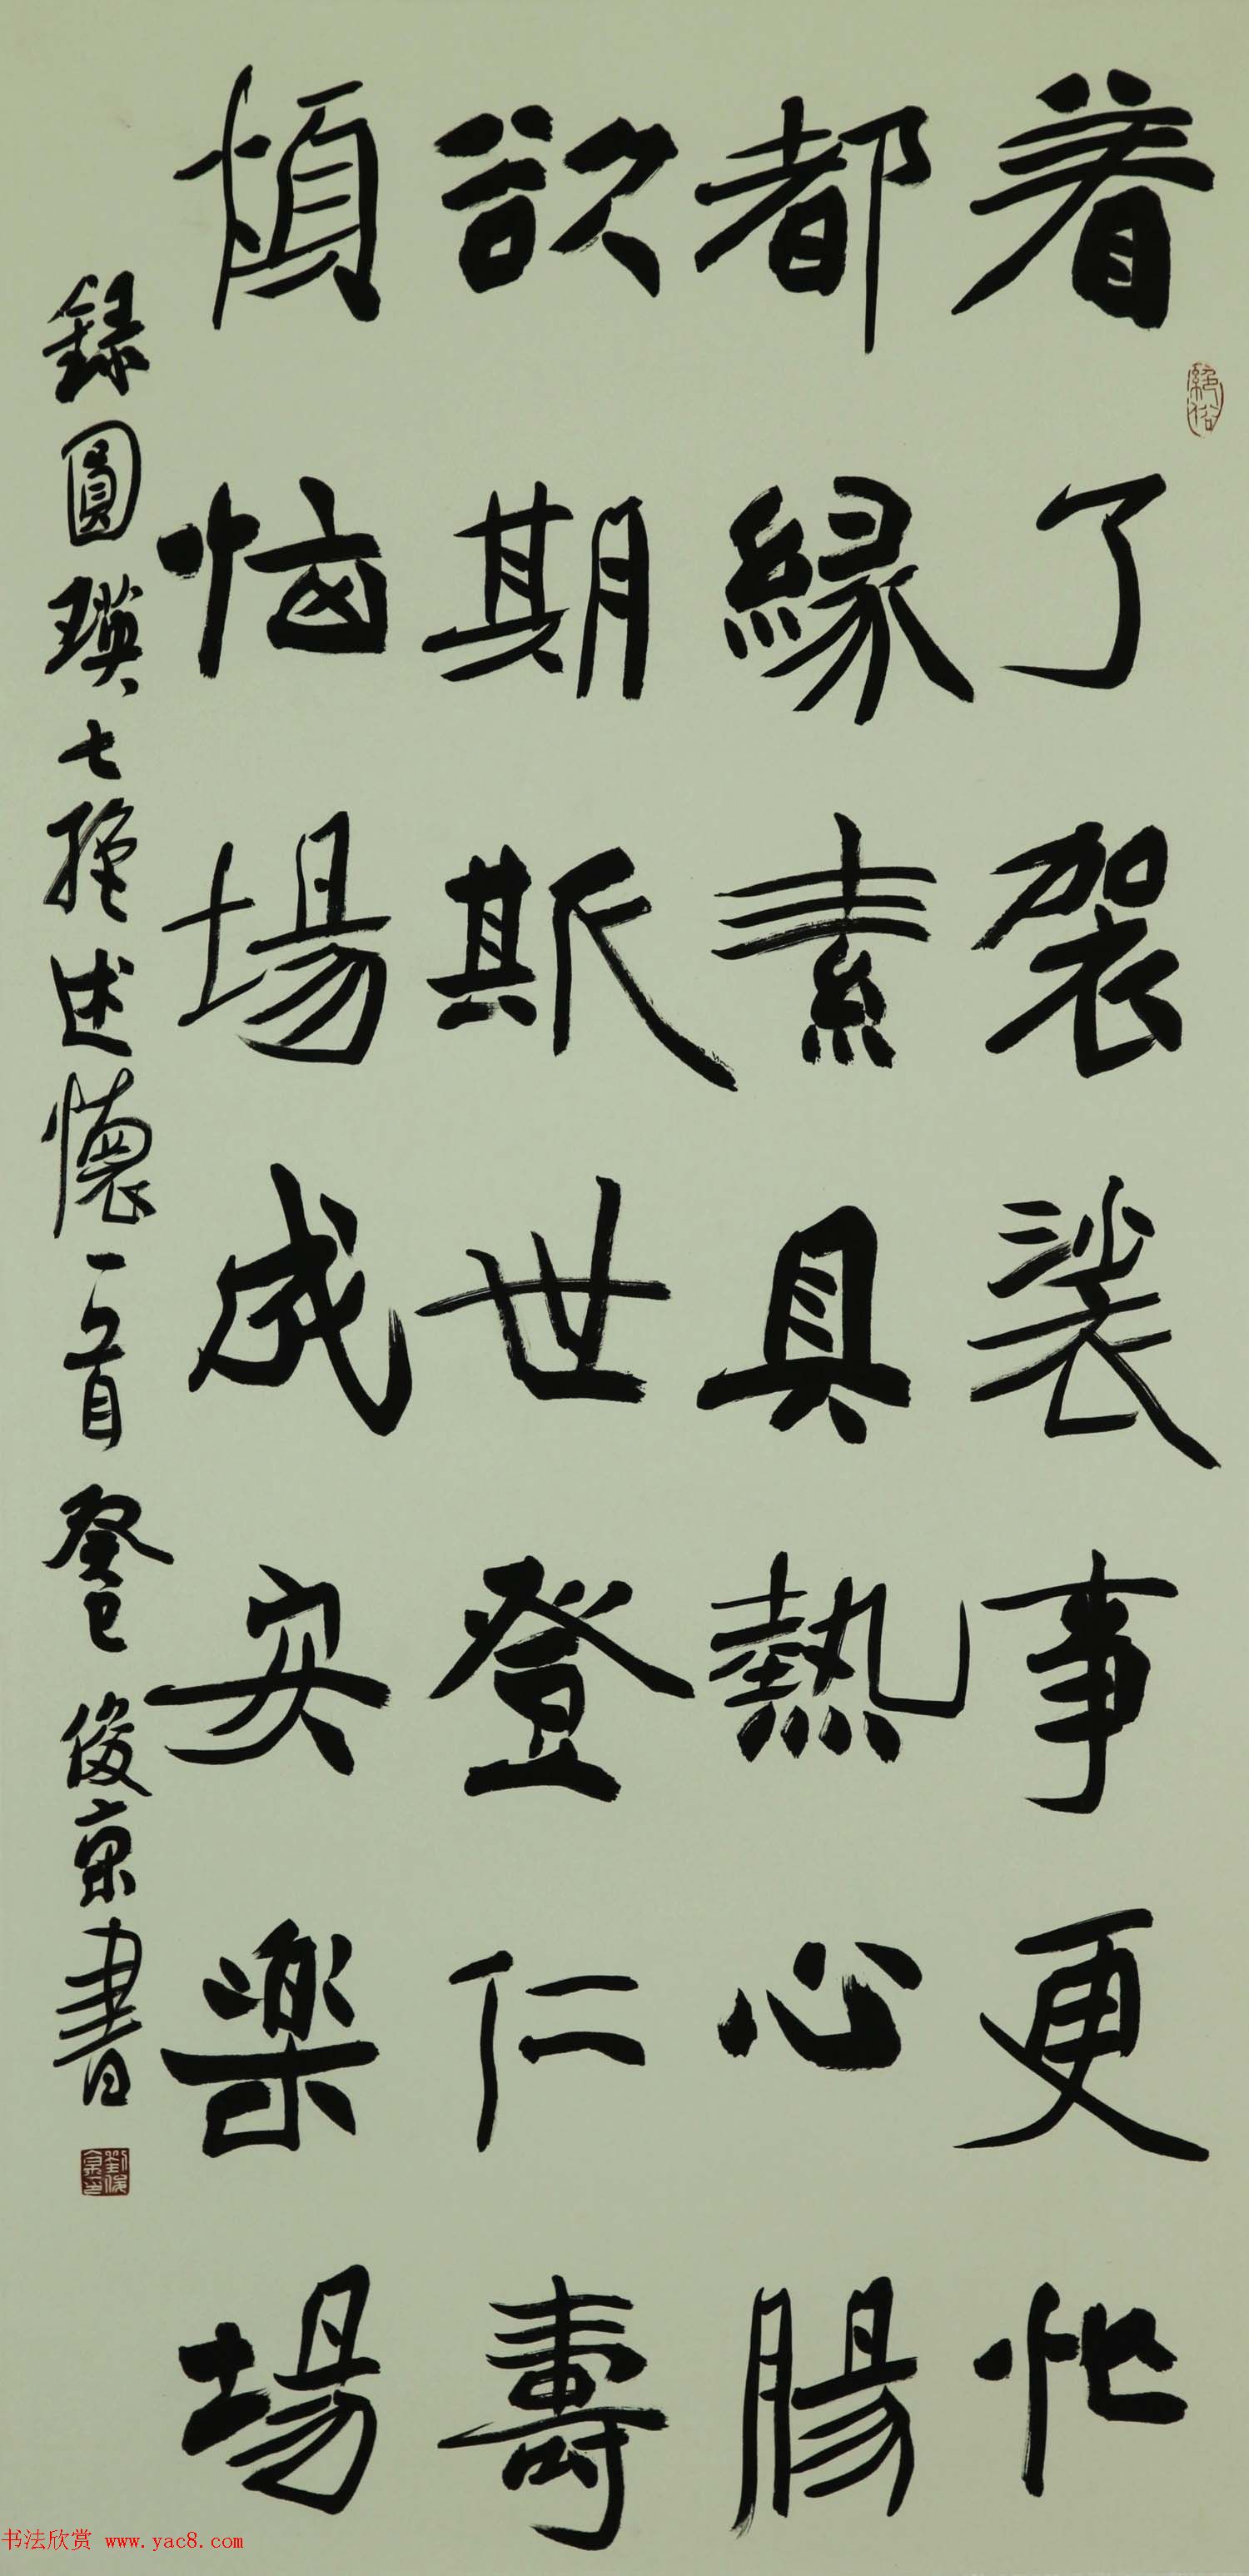 着了袈裟事更忙
都緣素具熱心腸
欲期斯世登仁壽
煩惱場成安樂場
錄圓瑛七絕述懷一首癸巳俊京書
絕俗
劉俊京印
书法欣赏 www.yac8.com